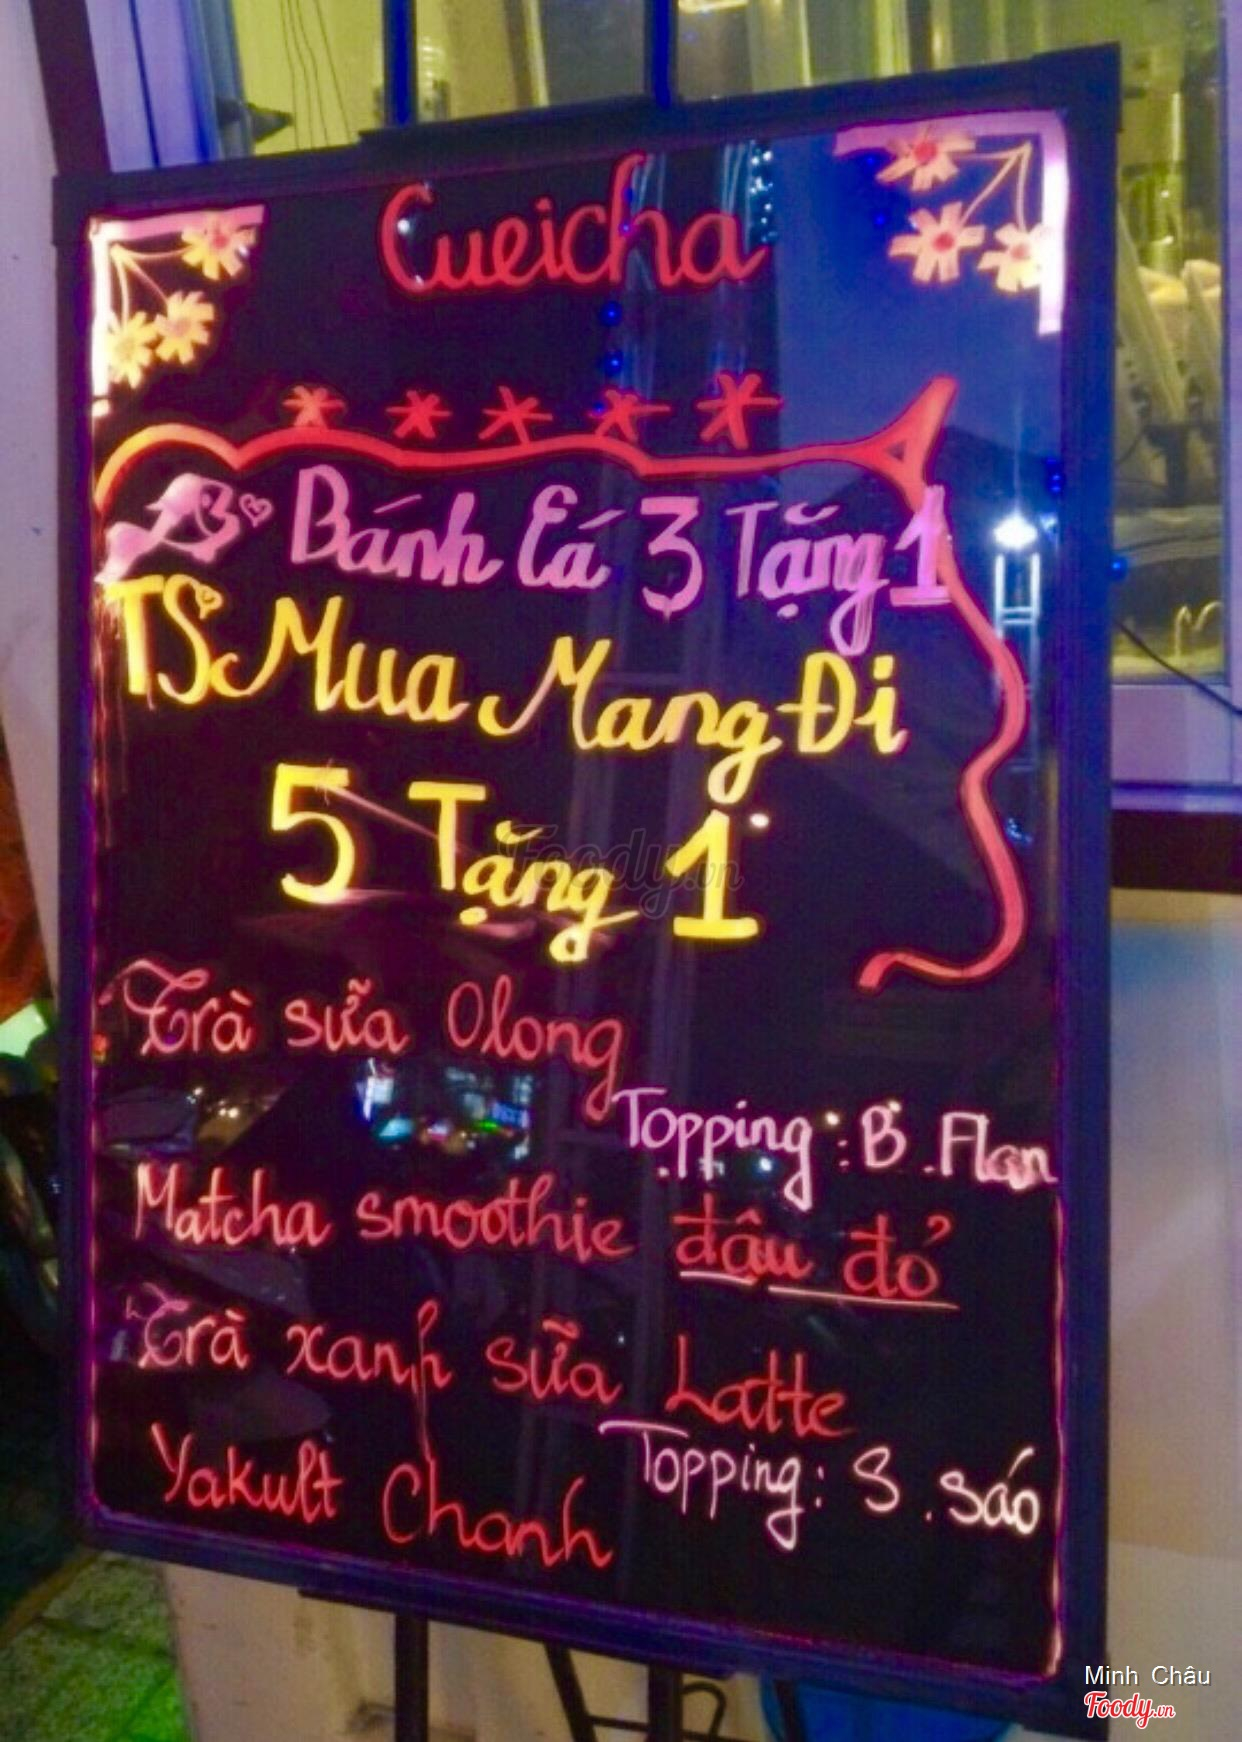 Cueicha
Bánh Cá 3 Tặng 1
TS Mua Mang Đi
5 Tặng 1
Trà sữa Olong
Topping : B. Flan
Matcha smoothie đậu đỏ
Trà xanh sữa Latte
Topping : S. Sáo
Yakult Chanh
Foody.vn
Minh Châu
Foody.vn